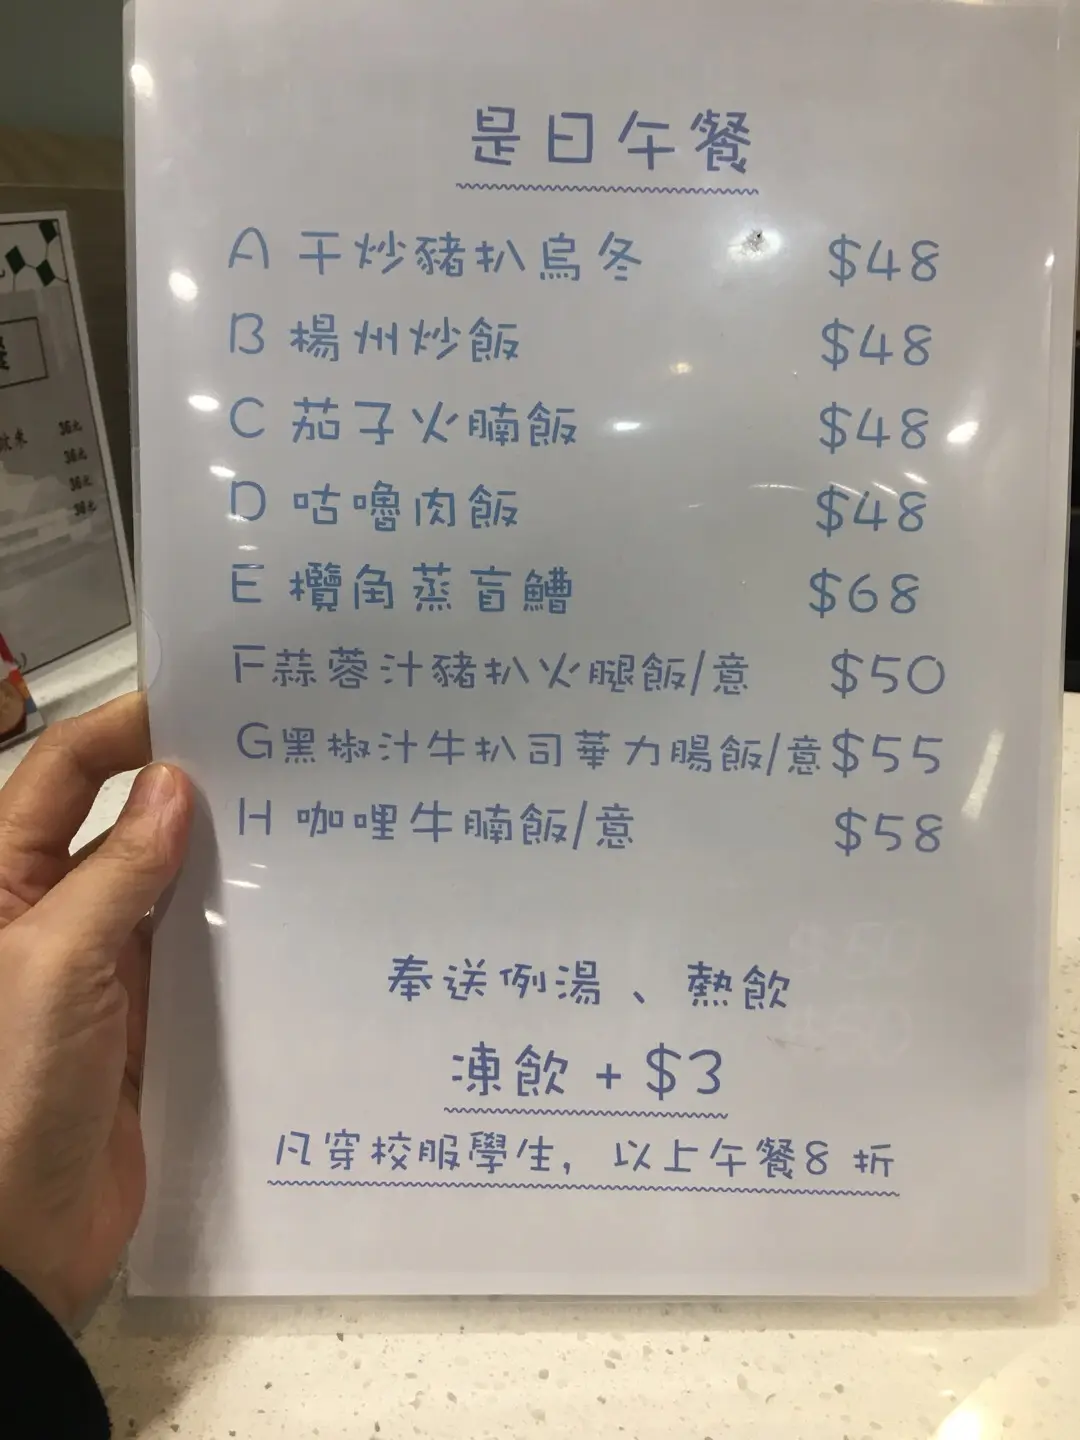 是日午餐
A 干炒豬扒烏冬 $48
B 楊州炒飯 $48
C 茄子火腩飯 $48
D 咕嚕肉飯 $48
E 欖角蒸盲鰽 $68
F蒜蓉汁豬扒火腿飯/意 $50
G黑椒汁牛扒司華力腸飯/意$55
H 咖哩牛腩飯/意 $58
奉送例湯、熱飲
凍飲 + $3
凡穿校服學生, 以上午餐8 折
36元
36元
36元
36元